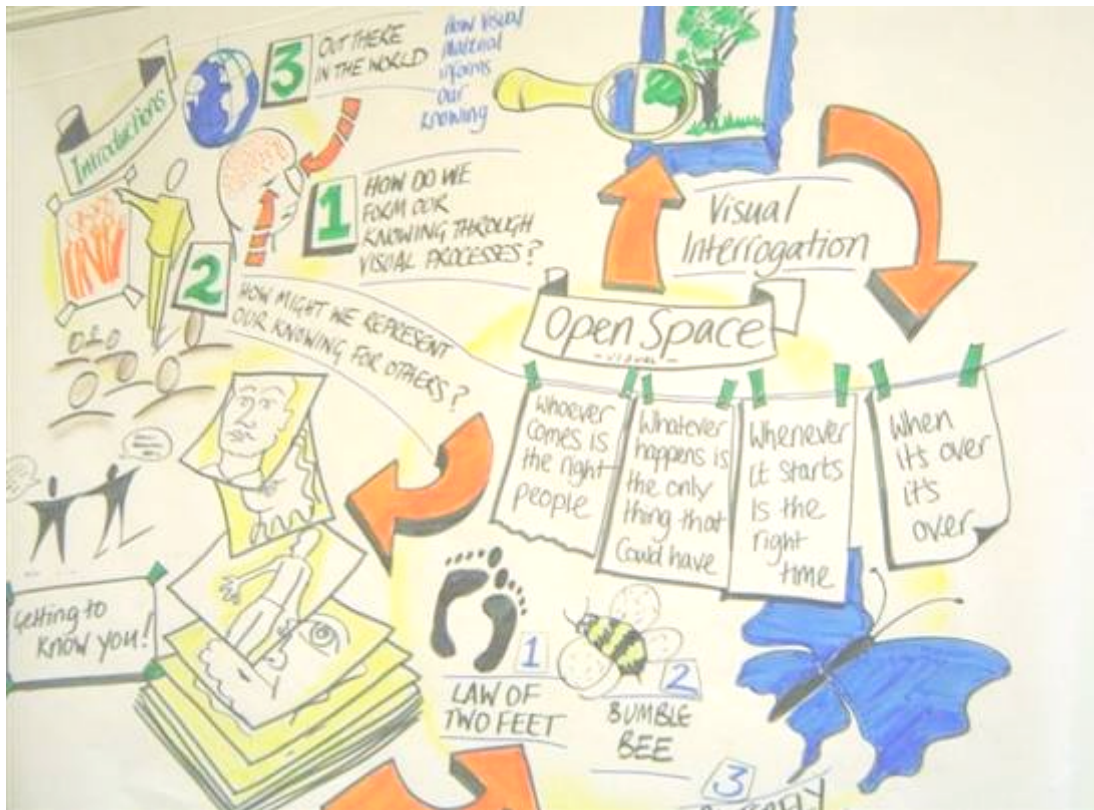 Introductions
3
OUT THERE
IN THE WORLD
How visual
material
informs
our
knowing
1
HOW DO WE
FORM OUR
KNOWING THROUGH
VISUAL PROCESSES?
2
HOW MIGHT WE REPRESENT
OUR KNOWING FOR OTHERS?
Visual
Interrogation
Open Space
- VISUAL -
Whoever
comes is
the right
people
Whatever
happens is
the only
thing that
Could have
Whenever
it starts
Is the
right
time
When
it's over
it's
over
Getting to
know you!
1
LAW OF
TWO FEET
2
BUMBLE
BEE
3
BUTTERFLY